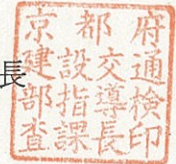 長
京都府
建設交通
部指導検
査課長印